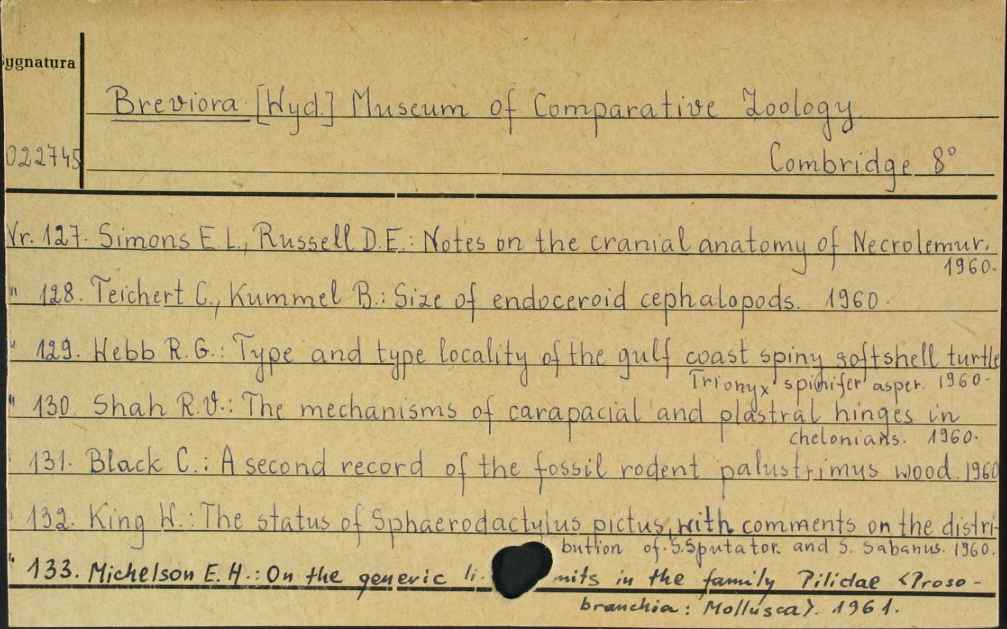 Sygnatura
Breviora [Wyd.] Museum of Comparative Zoology
022745
Combridge 8°
Nr. 127. Simons E L., Russell D.E.: Notes on the cranial anatomy of Necrolemur.
1960.
" 128. Teichert C., Kummel B.: Size of endoceroid cephalopods. 1960.
" 129. Webb R.G.: Type and type locality of the gulf coast spiny softshell turtle
Trionyx spinifer asper. 1960.
" 130. Shah R.V.: The mechanisms of carapacial and plastral hinges in
chelonians. 1960.
" 131. Black C.: A second record of the fossil rodent palustrimus wood. 1960
" 132. King W.: The status of Sphaerodactylus pictus, with comments on the distri-
bution of S. Sputator. and S. Sabanus. 1960.
" 133. Michelson E.H.: On the generic li- mits in the family Pilidae <Proso-
branchia: Mollusca>. 1961.